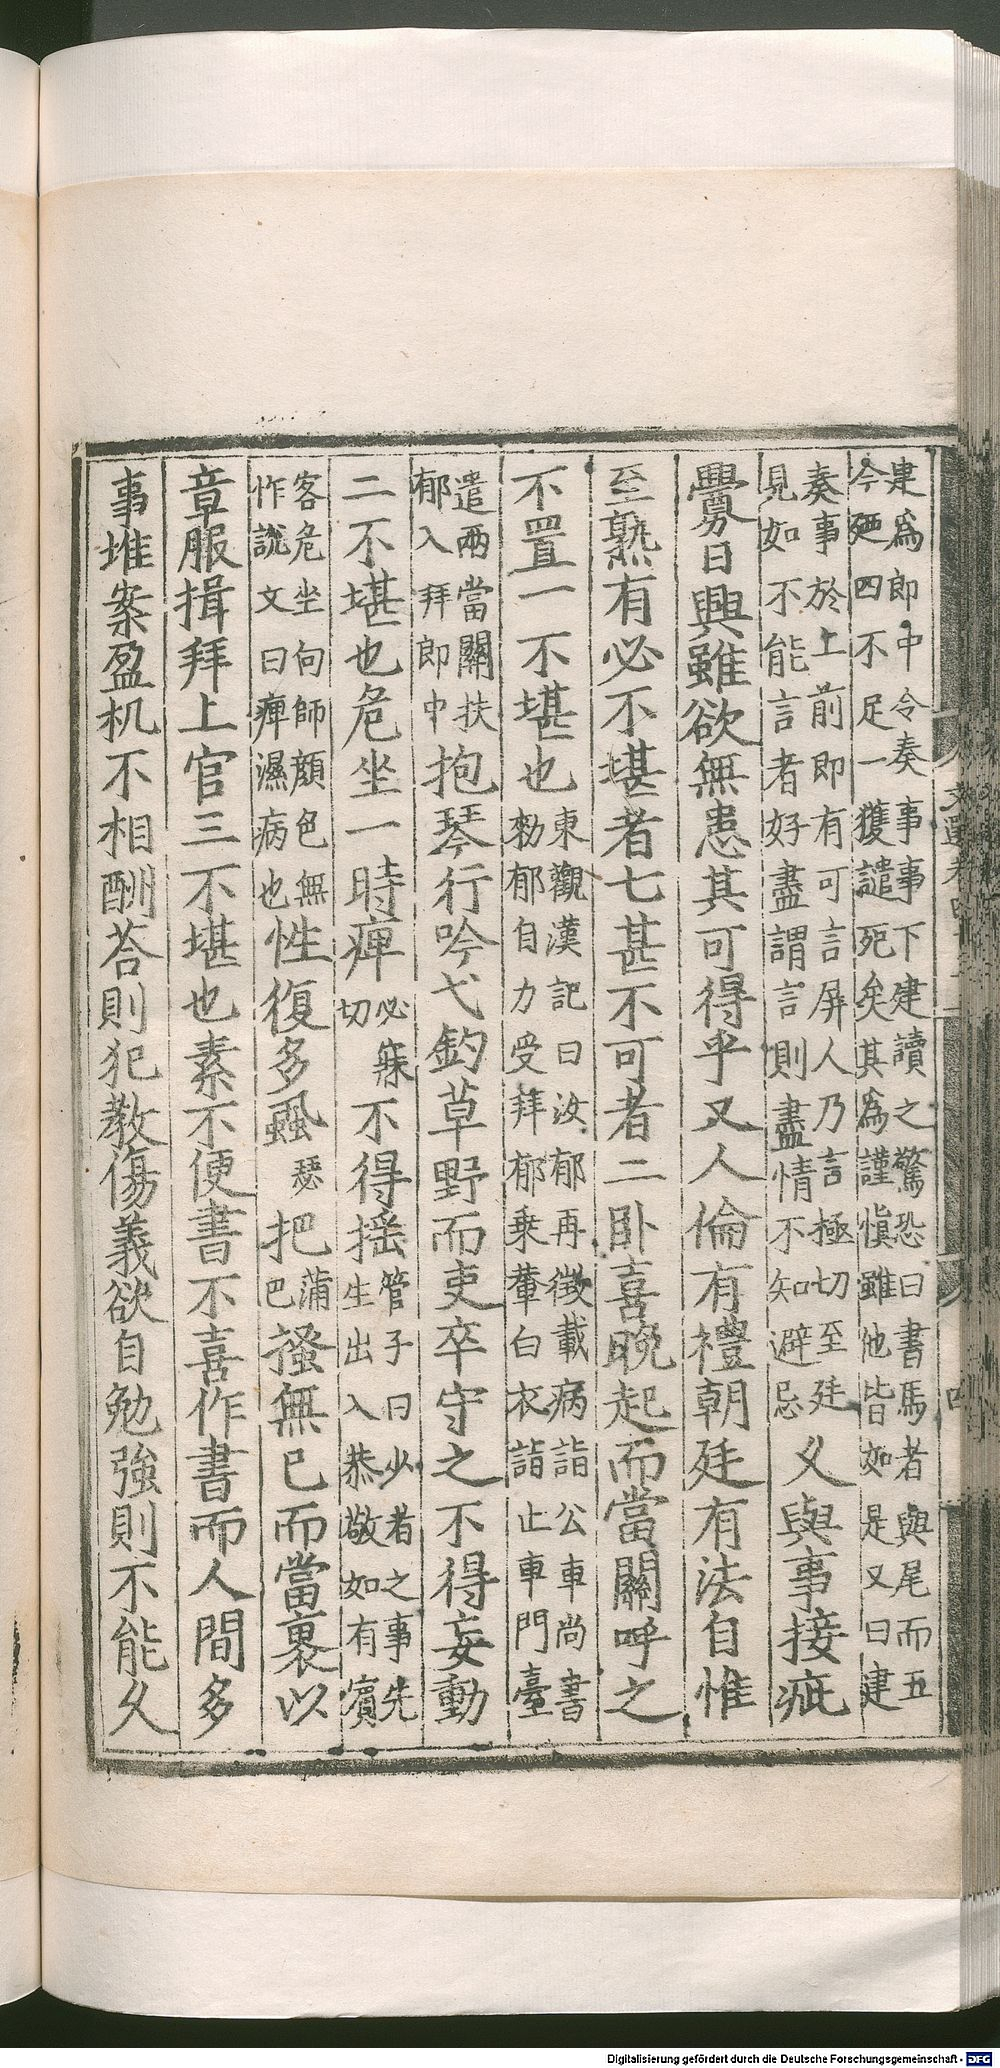 建爲郎中令奏事事下建讀之驚恐曰書馬者與尾而五
今廼四不足一獲譴死矣其爲謹慎雖他皆如是又曰建
奏事於上前即有可言屏人乃言極切至廷
見如不能言者好盡謂言則盡情不知避忌
乆與事接疵
釁日興雖欲無患其可得乎又人倫有禮朝廷有法自惟
至熟有必不堪者七甚不可者二卧喜晚起而當關呼之
不置一不堪也
東觀漢記曰汝郁再徵載病詣公車尚書
勑郁自力受拜郁乗輦白衣詣止車門臺
遣兩當關扶
郁入拜郎中
抱琴行吟弋釣草野而吏卒守之不得妄動
二不堪也危坐一時痺
必寐
切
不得揺
管子曰少者之事先
生出入恭敬如有賔
客危坐向師顔色無
怍説文曰痺濕病也
性復多蝨
瑟
把
蒲
巴
搔無已而當裹以
章服揖拜上官三不堪也素不便書不喜作書而人間多
事堆案盈机不相酬荅則犯教傷義欲自勉強則不能乆
Digitalisierung gefördert durch die Deutsche Forschungsgemeinschaft - DFG